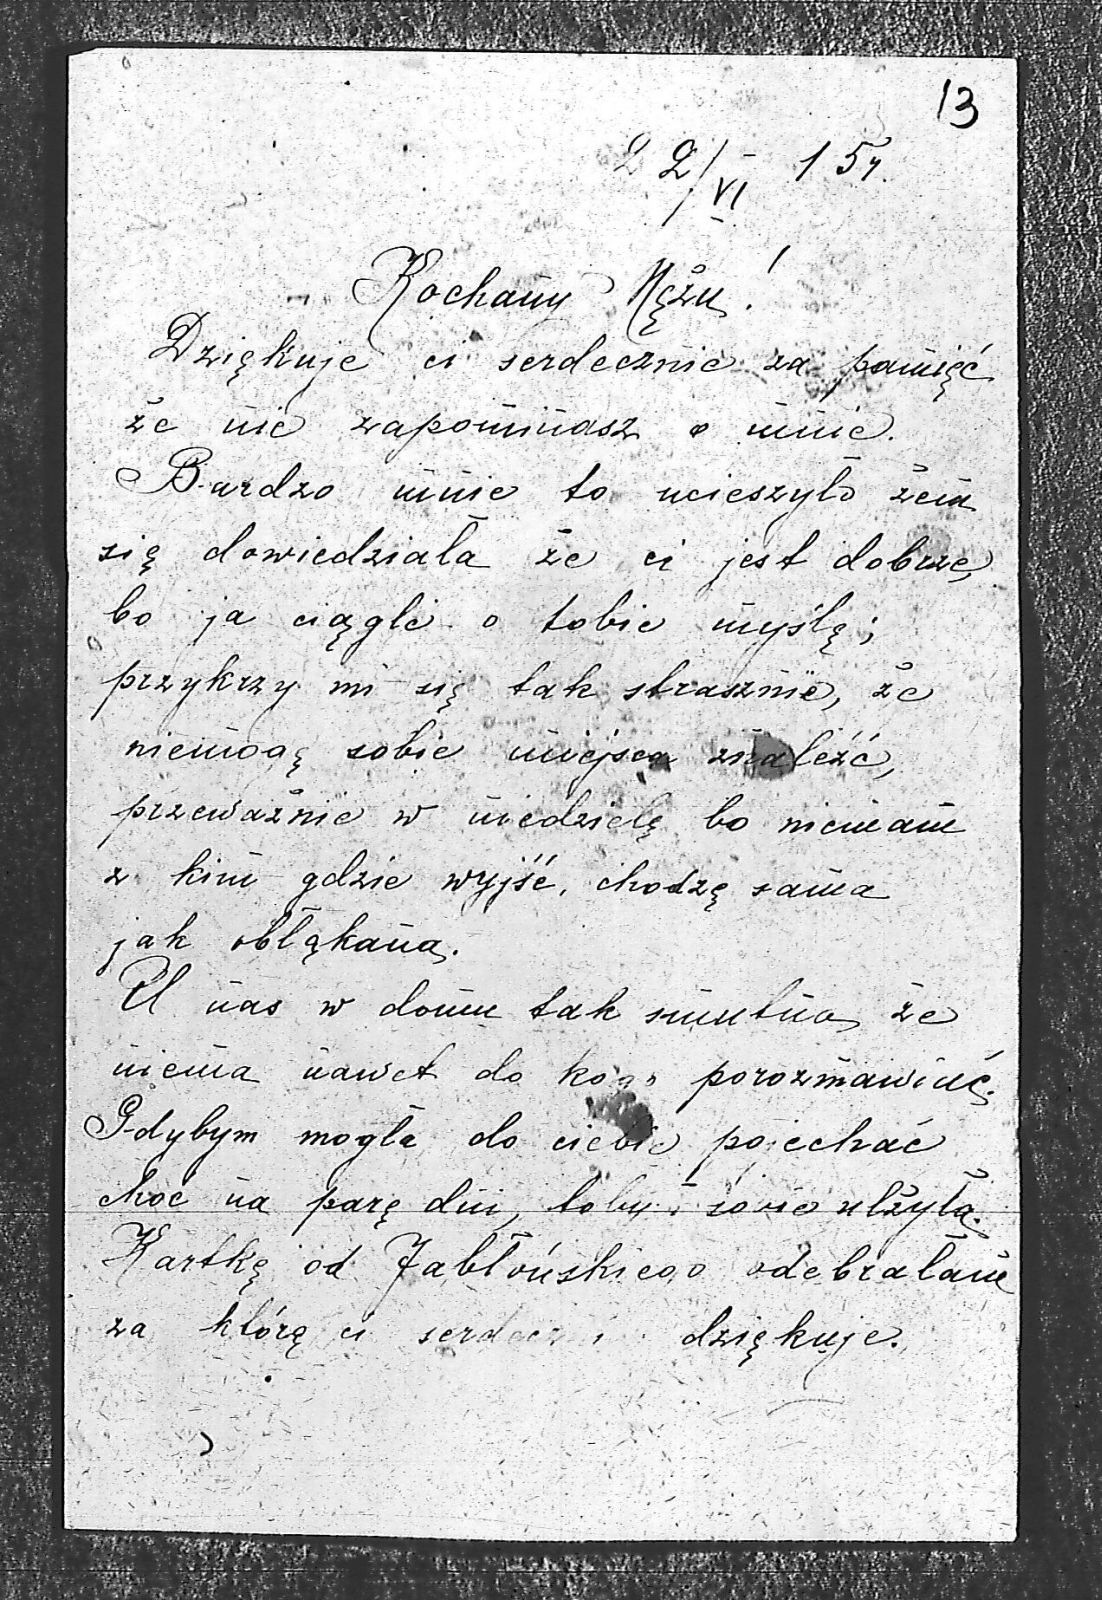 13
22/VI 15r.
Kochany Mężu!
Dziękuje ci serdecznie za pamięć
że nie zapominasz o mnie.
Bardzo mnie to ucieszyło żem
się dowiedziała że ci jest dobrze,
bo ja ciągle o tobie myślę;
przykrzy mi się tak strasznie, że
niemogę sobie miejsca znaleźć,
przeważnie w niedzielę bo niemam
z kim gdzie wyjść, chodzę sama
jak obłąkana.
U nas w domu tak smutno, że
niema nawet do kogo porozmawiać.
Gdybym mogła do ciebie pojechać
choć na parę dni, tobym sobie ulżyła.
Kartkę od Jabłońskiego odebrałam
za którą ci dziękuje.